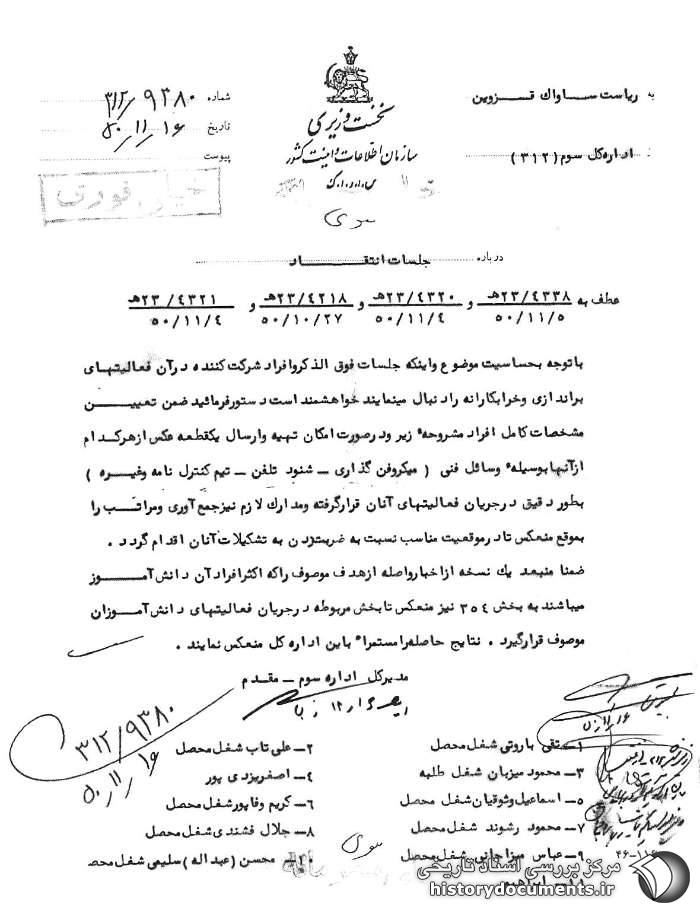 به ریاست ساواک قزوین
اداره کل سوم (۳۱۲)
نخست وزیری
سازمان اطلاعات و امنیت کشور
س.ا.و.ا.ک
شماره ۳۱۲/۹۳۸۰
تاریخ ۵۰/۱۱/۱۶
پیوست
خیلی فوری
سری
درباره جلسات انتقاد
عطف به ۲۳/۴۳۳۸هـ و ۲۳/۴۳۲۰هـ و ۲۳/۴۲۱۸هـ و ۲۳/۴۳۲۱هـ
۵۰/۱۱/۵ ۵۰/۱۱/۴ ۵۰/۱۰/۲۷ ۵۰/۱۱/۴
باتوجه بحساسیت موضوع واینکه جلسات فوق الذکروافراد شرکت کننده درآن فعالیتهای
براندازی وخرابکارانه رادنبال مینمایند خواهشمند است دستورفرمائید ضمن تعیین
مشخصات کامل افراد مشروحه زیر ودرصورت امکان تهیه وارسال یکقطعه عکس ازهرکدام
ازآنهابوسیله وسائل فنی (میکروفن گذاری ـ شنود تلفن ـ تیم کنترل نامه وغیره)
بطور دقیق درجریان فعالیتهای آنان قرارگرفته ومدارک لازم نیزجمع آوری ومراتب را
بموقع منعکس تادرموقعیت مناسب نسبت به ضربتزدن به تشکیلات آنان اقدام گردد.
ضمنا منبعد یک نسخه ازاخبارواصله ازهدف موصوف راکه اکثرافرادآن دانش آموز
میباشند به بخش ۳۵۴ نیز منعکس تابخش مربوطه درجریان فعالیتهای دانش آموزان
موصوف قرارگیرد. نتایج حاصله رامستمرا" باین اداره کل منعکس نمایند.
مدیرکل اداره سوم ـ مقدم
۳۱۲/۹۳۸۰
۵۰/۱۱/۱۶
۱ـ تقی باروتی شغل محصل
۲ـ علی تاب شغل محصل
۳ـ محمود میزبان شغل طلبه
۴ـ اصغریزدی پور
۵ـ اسماعیل وشوقیان شغل محصل
۶ـ کریم وفاپورشغل محصل
۷ـ محمود رشوند شغل محصل
۸ـ جلال فشندی شغل محصل
۹ـ عباس میزاجانی شغل محصل
۱۰ـ محسن (عبداله) سلیمی شغل محص
سری
۴۶-۱۱۶
مرکز بررسی اسناد تاریخی
historydocuments.ir